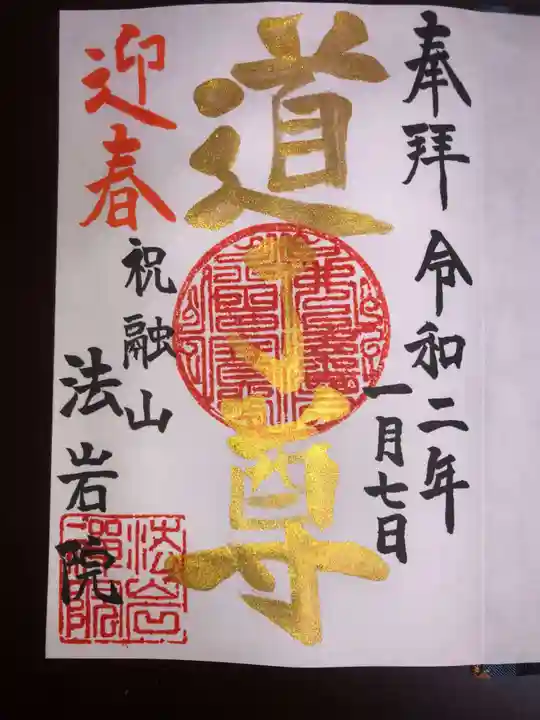 奉拝 令和二年
一月七日
道之尊
迎春
祝融山
法岩院